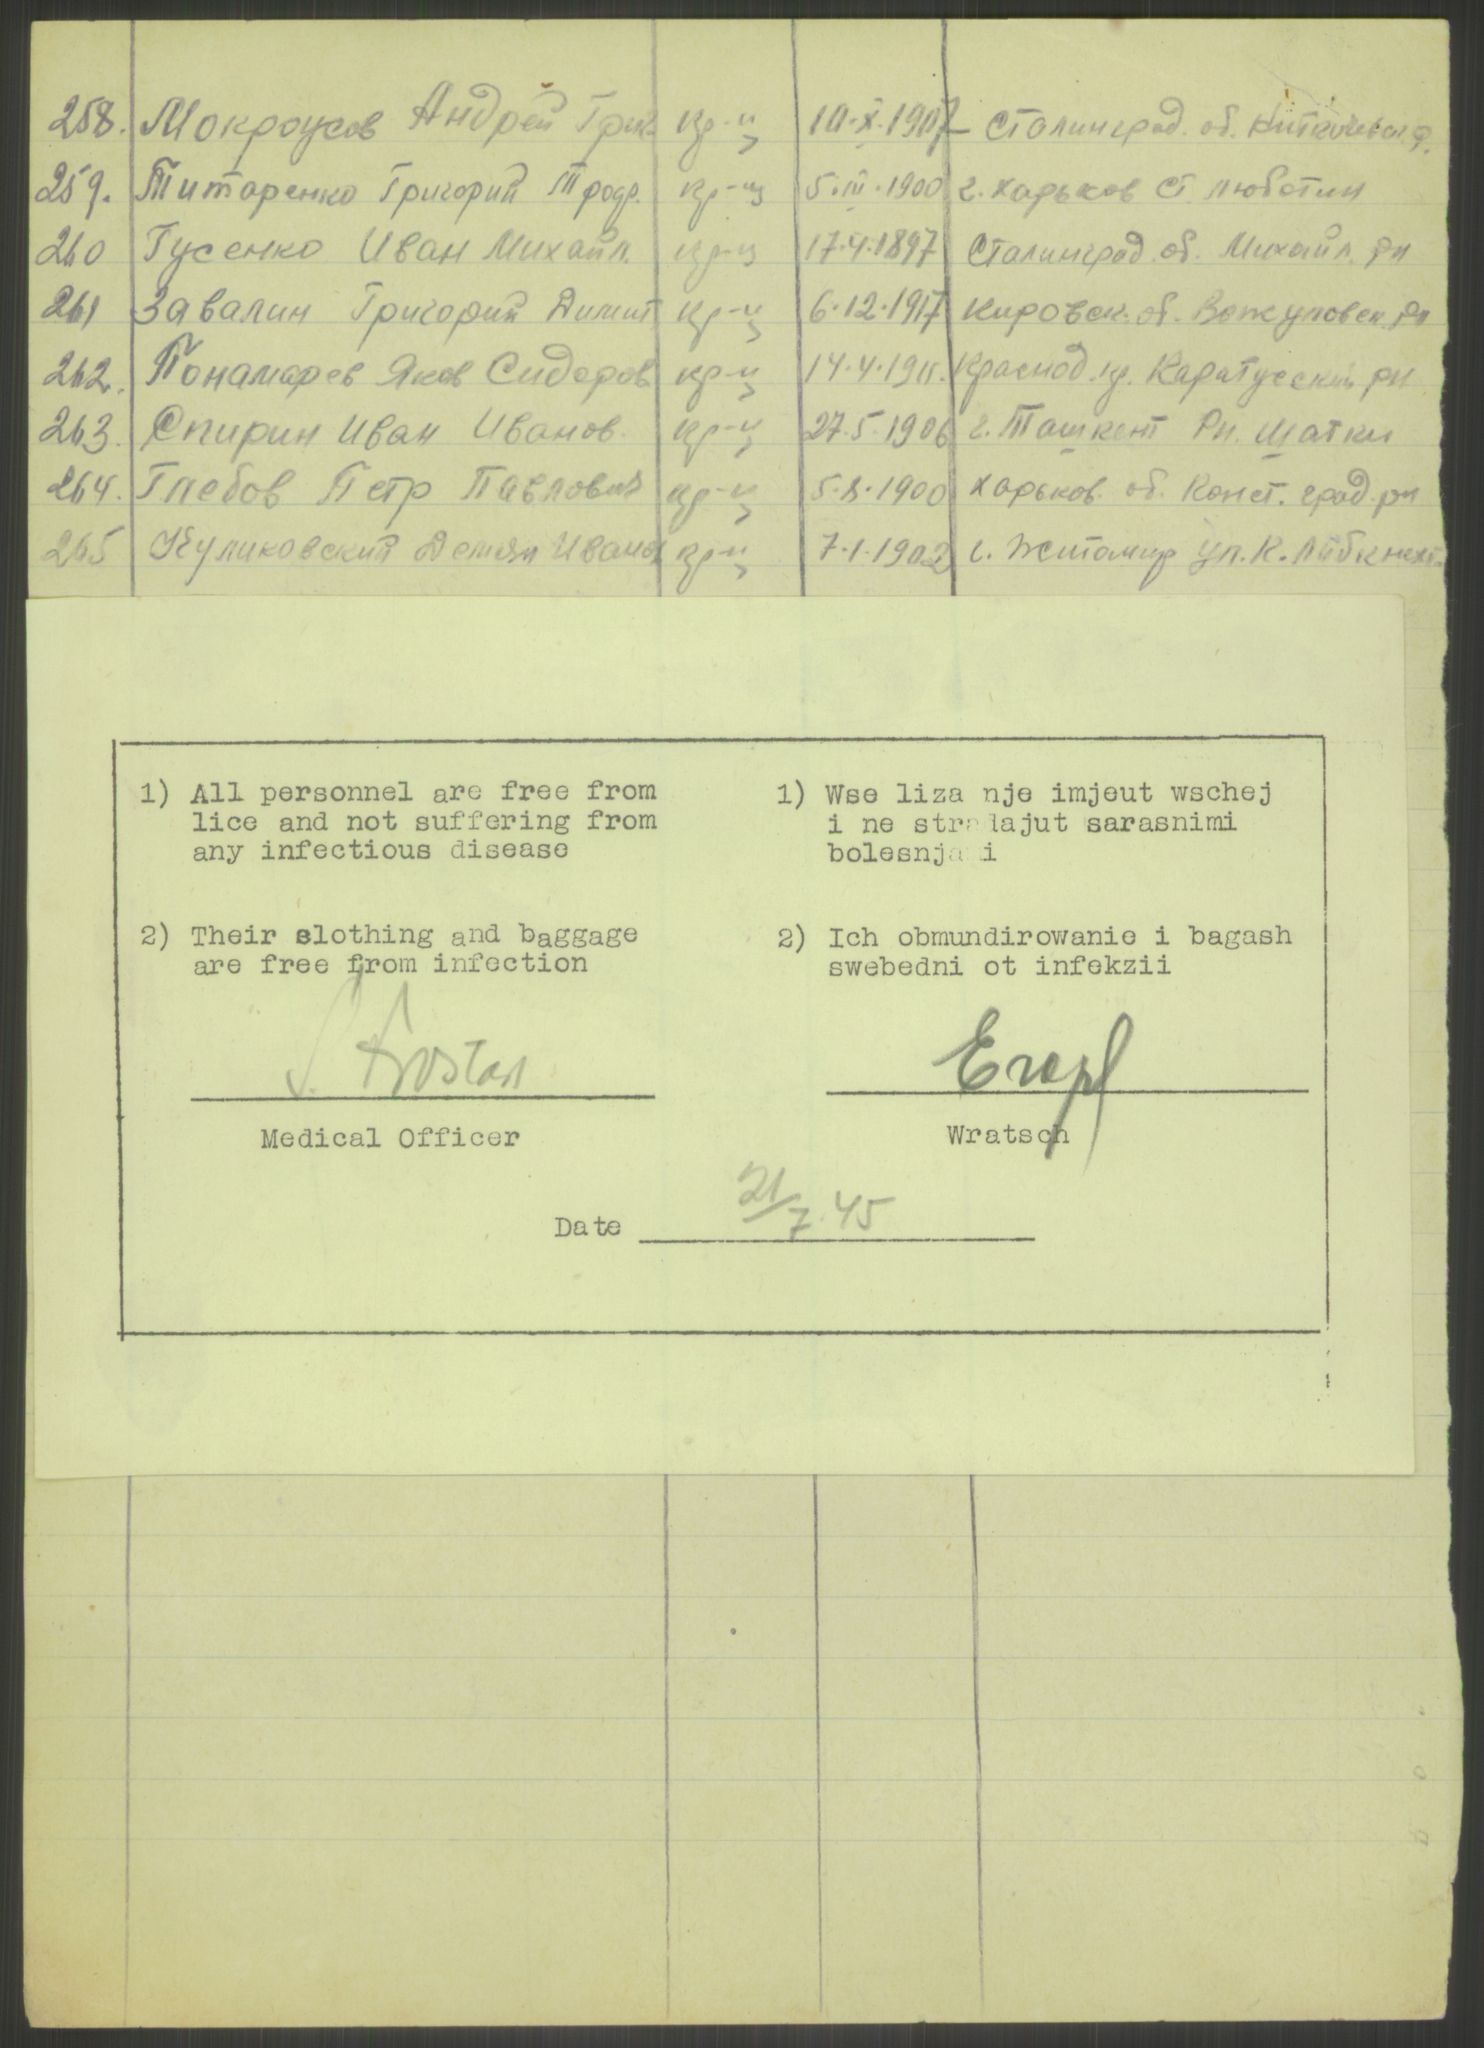 258. Мокроусов Андрей Григ. кр-ц 10.X.1907 Сталинград. об.
259. Титаренко Григорий кр-ц 5.III.1900 г. Харьков ст. Люботин
260 Гусенко Иван Михайл. кр-ц 17.4.1897 Сталинград. об. Михайл. рн
261 Завалин Григорий Димит кр-ц 6.12.1917 Кировск. об. рн
262. Понамарев Яков Сидоров кр-ц 14.4.1911. Краснод. кр. Каратусский рн
263. Спирин Иван Иванов. кр-ц 27.5.1906 г. Ташкент рн. Шатки
264. Глебов Петр Павлович кр-ц 5.8.1900 Харьков. об. Конст. град. рн
265 Куликовский Демян Иванов кр-ц 7.1.1902 г. Житомир ул. К. Либкнехт.
1) All personnel are free from
lice and not suffering from
any infectious disease
1) Wse liza nje imjeut wschej
i ne stradajut sarasnimi
bolesnjami
2) Their slothing and baggage
are free from infection
2) Ich obmundirowanie i bagash
swebedni ot infekzii
Medical Officer
Wratsch
Date 21/7.45